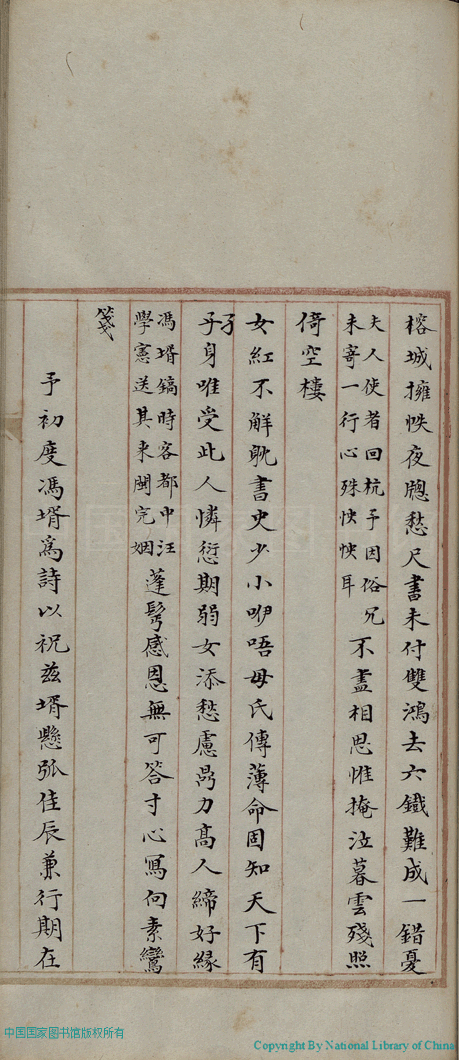 榕城擁帙夜牕愁尺書未付雙鴻去六鐵難成一錯憂
夫人使者回杭予因俗冗
未寄一行心殊怏怏耳
不盡相思惟掩泣暮雲殘照
倚空樓
女紅不解躭書史少小咿唔母氏傳薄命固知天下有
孑身唯受此人憐愆期弱女添愁慮力高人締好緣
馮壻鎬時客都中汪
學憲送其来閩完姻
蓬髩感恩無可答寸心寫向素鸞
箋
予初度馮壻爲詩以祝茲壻懸弧佳辰兼行期在
中国国家图书馆版权所有
Copyright By National Library of China